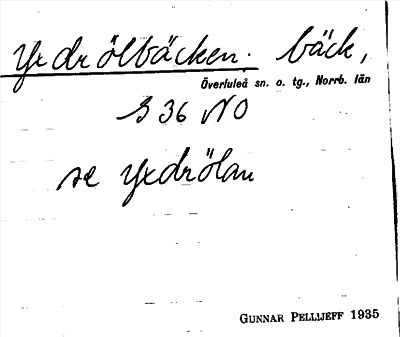 Yxdrölbäcken. bäck,
Överluleå sn. o. tg., Norrb. län
S 36 NO
se Yxdrölan
GUNNAR PELLIJEFF 1935